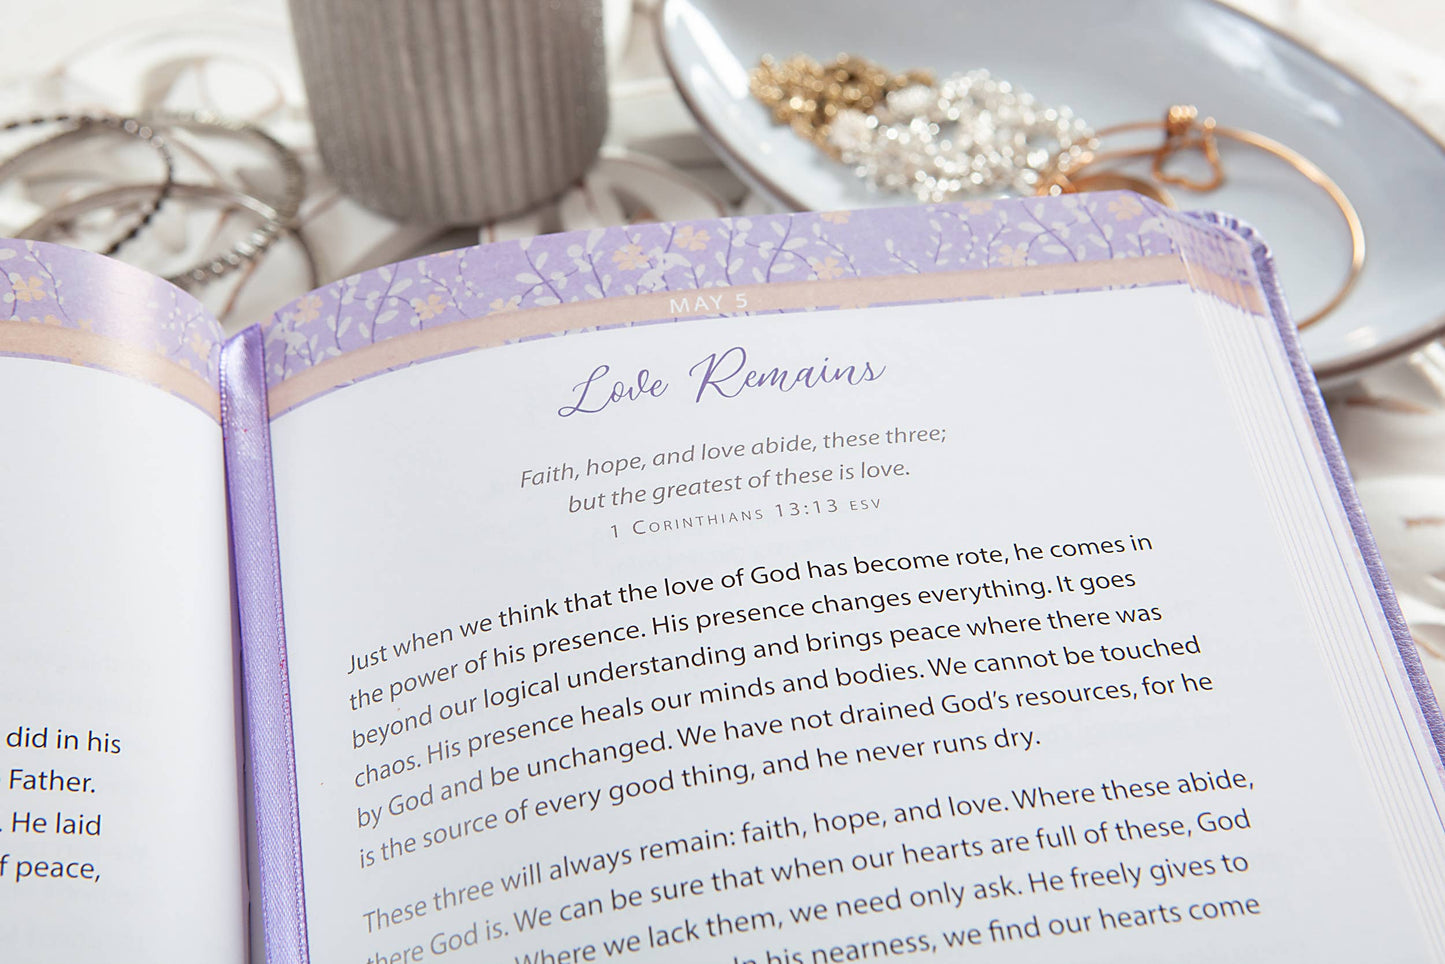 did in his
Father.
. He laid
f peace,
MAY 5
Love Remains
Faith, hope, and love abide, these three;
but the greatest of these is love.
1 Corinthians 13:13 ESV
Just when we think that the love of God has become rote, he comes in
the power of his presence. His presence changes everything. It goes
beyond our logical understanding and brings peace where there was
chaos. His presence heals our minds and bodies. We cannot be touched
by God and be unchanged. We have not drained God's resources, for he
is the source of every good thing, and he never runs dry.
These three will always remain: faith, hope, and love. Where these abide,
there God is. We can be sure that when our hearts are full of these, God
Where we lack them, we need only ask. He freely gives to
In his nearness, we find our hearts come